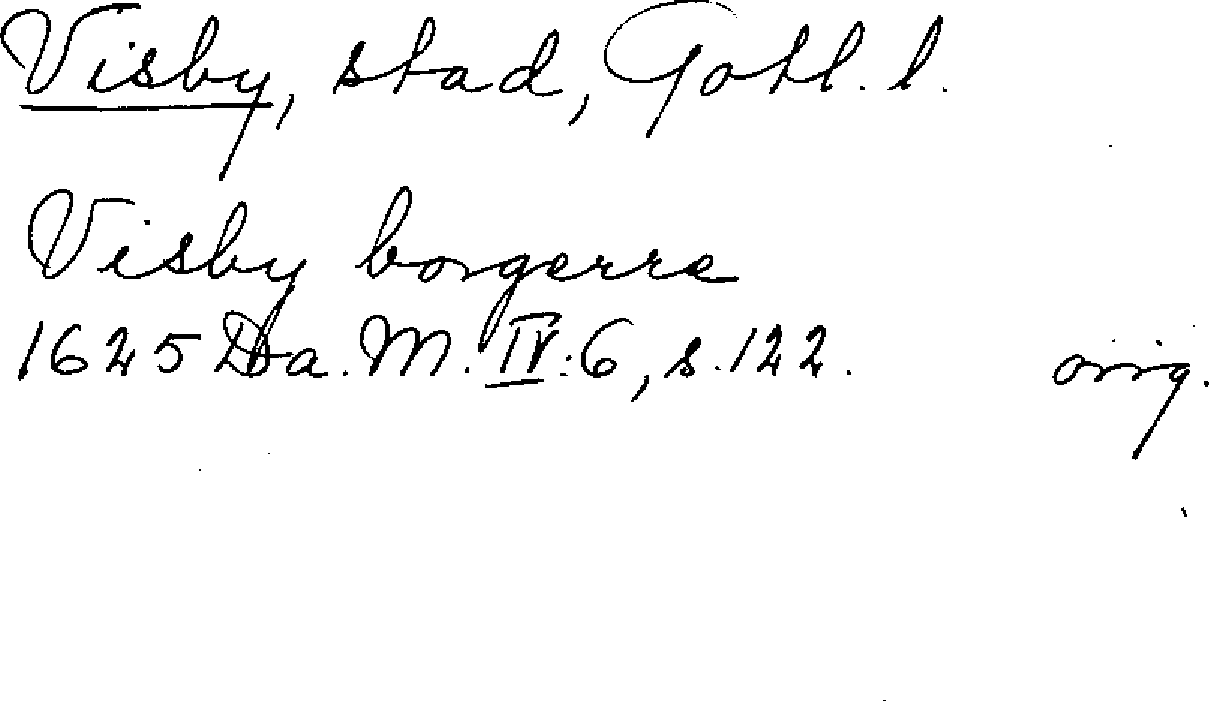 Visby, stad, Gotl. l.
Visby borgerre
1625 Da. M. IV:6, s. 122. orig.